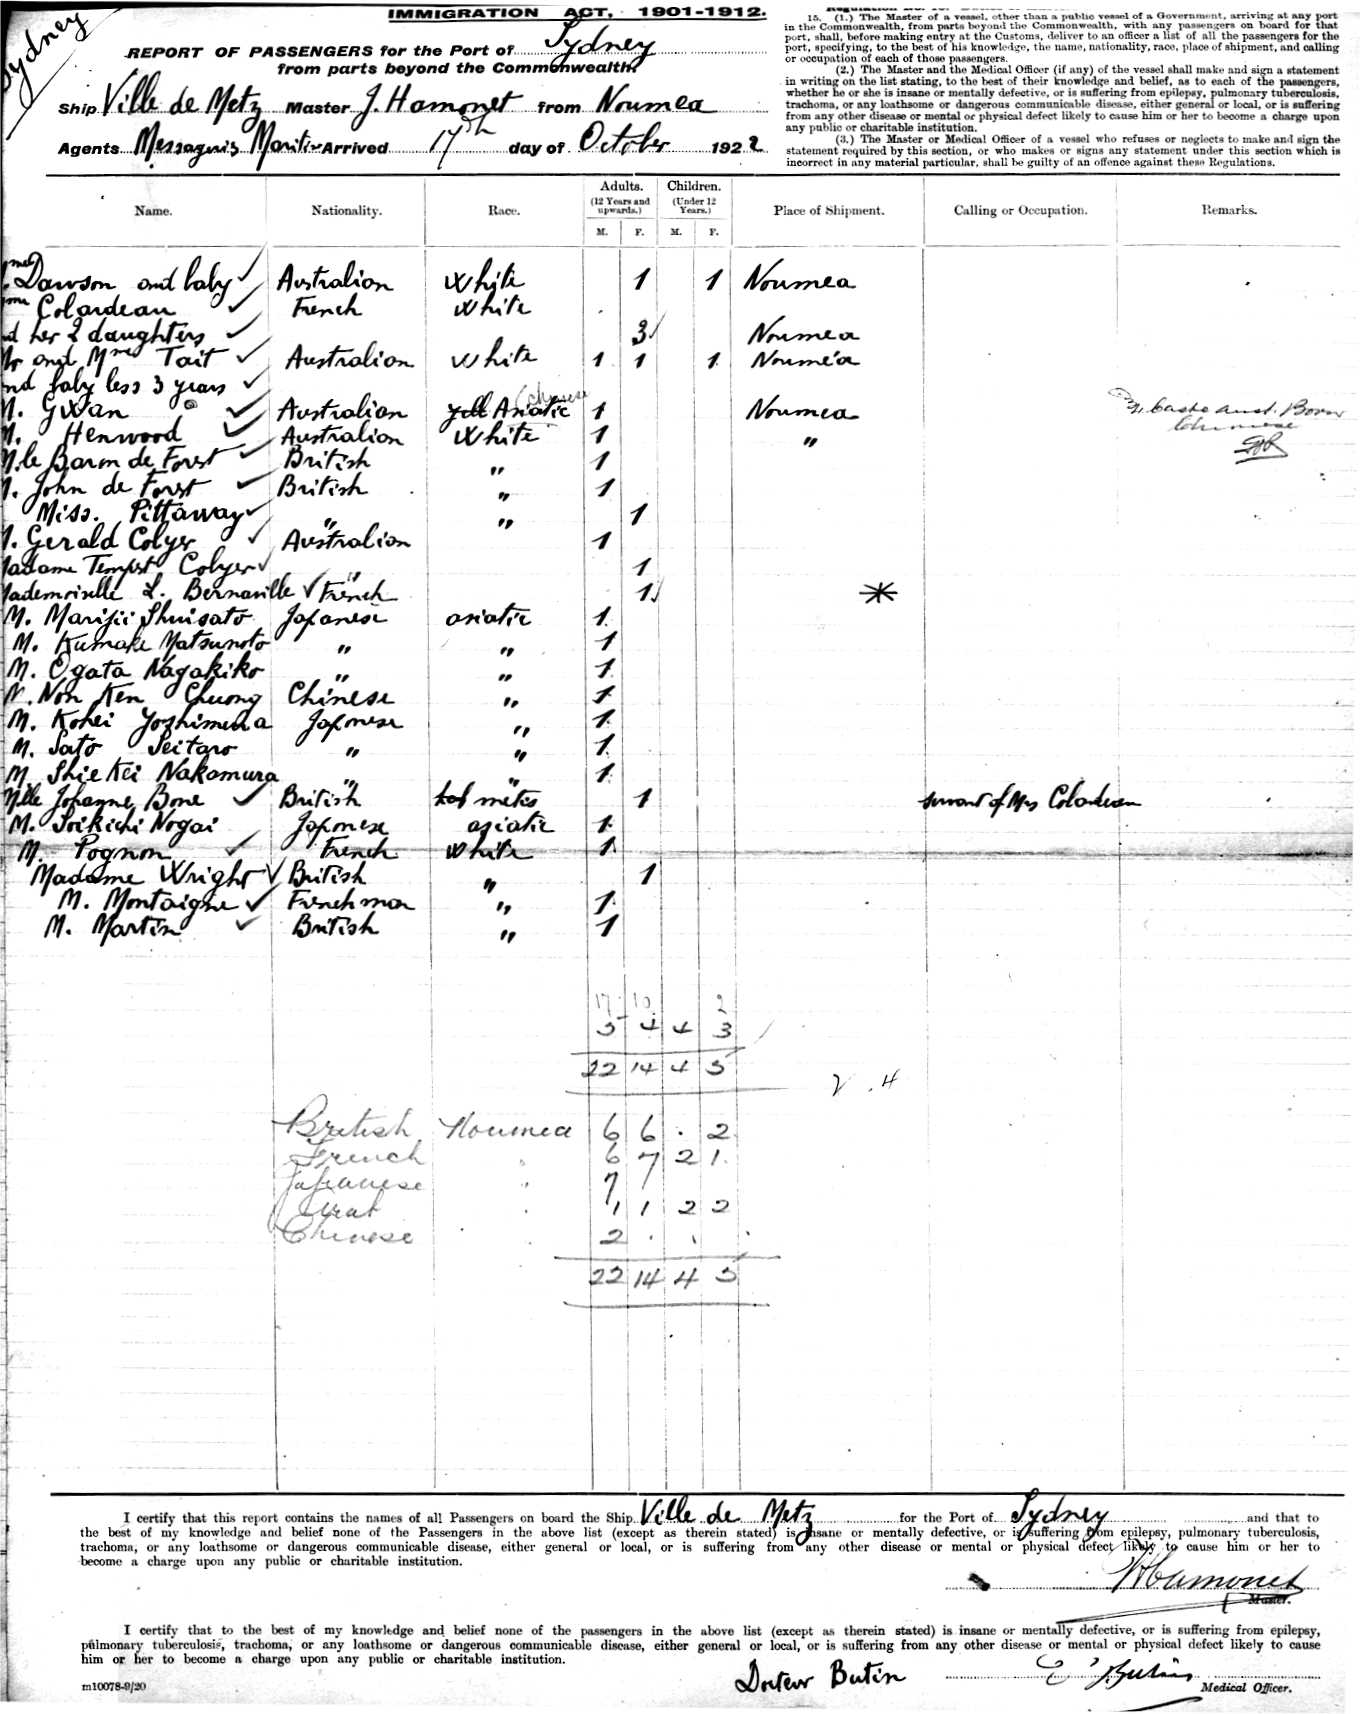 Sydney
IMMIGRATION ACT, 1901-1912.
REPORT OF PASSENGERS for the Port of Sydney
from parts beyond the Commonwealth.
Ship Ville de Metz Master J. Hamonet from Noumea
Agents Messageries Maritimes Arrived 17th day of October 1922
15. (1.) The Master of a vessel, other than a public vessel of a Government, arriving at any port
in the Commonwealth, from parts beyond the Commonwealth, with any passengers on board for that
port, shall, before making entry at the Customs, deliver to an officer a list of all the passengers for the
port, specifying, to the best of his knowledge, the name, nationality, race, place of shipment, and calling
or occupation of each of those passengers.
(2.) The Master and the Medical Officer (if any) of the vessel shall make and sign a statement
in writing on the list stating, to the best of their knowledge and belief, as to each of the passengers,
whether he or she is insane or mentally defective, or is suffering from epilepsy, pulmonary tuberculosis,
trachoma, or any loathsome or dangerous communicable disease, either general or local, or is suffering
from any other disease or mental or physical defect likely to cause him or her to become a charge upon
any public or charitable institution.
(3.) The Master or Medical Officer of a vessel who refuses or neglects to make and sign the
statement required by this section, or who makes or signs any statement under this section which is
incorrect in any material particular, shall be guilty of an offence against these Regulations.
Name. Nationality. Race. Adults. (12 Years and upwards.) Children. (Under 12 Years.) Place of Shipment. Calling or Occupation. Remarks.
M. F. M. F.
Dawson and baby ✓ Australian White 1 1 Noumea
Colardeau ✓ French White
her 2 daughters ✓ 3 Noumea
and Mme Tait ✓ Australian White 1 1 1 Nouméa
baby less 3 years ✓
M. Gwan ✓ Australian Asiatic (chinese 1 Noumea Caste Aust. Born Chinese
M. Henwood ✓ Australian White 1 "
M. le Baron de Forst ✓ British " 1
M. John de Forst ✓ British " 1
Miss. Pittaway ✓ " " 1
M. Gerald Colyer ✓ Australian 1
Madame Tempst Colyer ✓ " 1
Mademoiselle L. Bernaville ✓ French 1
M. Marijii Shuisato Japanese asiatic 1
M. Kumake Matsunoto " " 1
M. Ogata Nagakiko " " 1
M. Non Ken Chuong Chinese " 1
M. Kohei Yoshimura Japonese " 1
M. Sato Seitaro " " 1
M. Shiekei Nakamura " " 1
Mlle Johanne Bone ✓ British metis 1 servant of Mrs Colardeau
M. Soikichi Nogai Japonese asiatic 1
M. Pognon ✓ French White 1
Madame Wright ✓ British " 1
M. Montaigne ✓ Frenchman " 1
M. Martin ✓ British " 1
17 10 2
5 4 4 3
22 14 4 5
V. 4
British Noumea 6 6 . 2
French " 6 7 2 1
Japanese " 7
Arab " 1 1 2 2
Chinese " 2 . . .
22 14 4 5
I certify that this report contains the names of all Passengers on board the Ship Ville de Metz for the Port of Sydney and that to
the best of my knowledge and belief none of the Passengers in the above list (except as therein stated) is insane or mentally defective, or is suffering from epilepsy, pulmonary tuberculosis,
trachoma, or any loathsome or dangerous communicable disease, either general or local, or is suffering from any other disease or mental or physical defect likely to cause him or her to
become a charge upon any public or charitable institution.
Hamonet
Master.
I certify that to the best of my knowledge and belief none of the passengers in the above list (except as therein stated) is insane or mentally defective, or is suffering from epilepsy,
pulmonary tuberculosis, trachoma, or any loathsome or dangerous communicable disease, either general or local, or is suffering from any other disease or mental or physical defect likely to cause
him or her to become a charge upon any public or charitable institution.
Docteur Butin
Medical Officer.
m10078-9/20